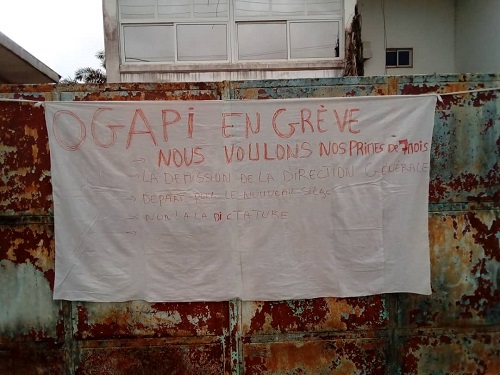 OGAPI EN GRÈVE
→ NOUS VOULONS NOS PRIMES DE 7 MOIS
→ LA DEMISSION DE LA DIRECTION GENERALE
→ DEPART LE NOUVEAU SIEGE
→ NON! A LA DICTATURE
→